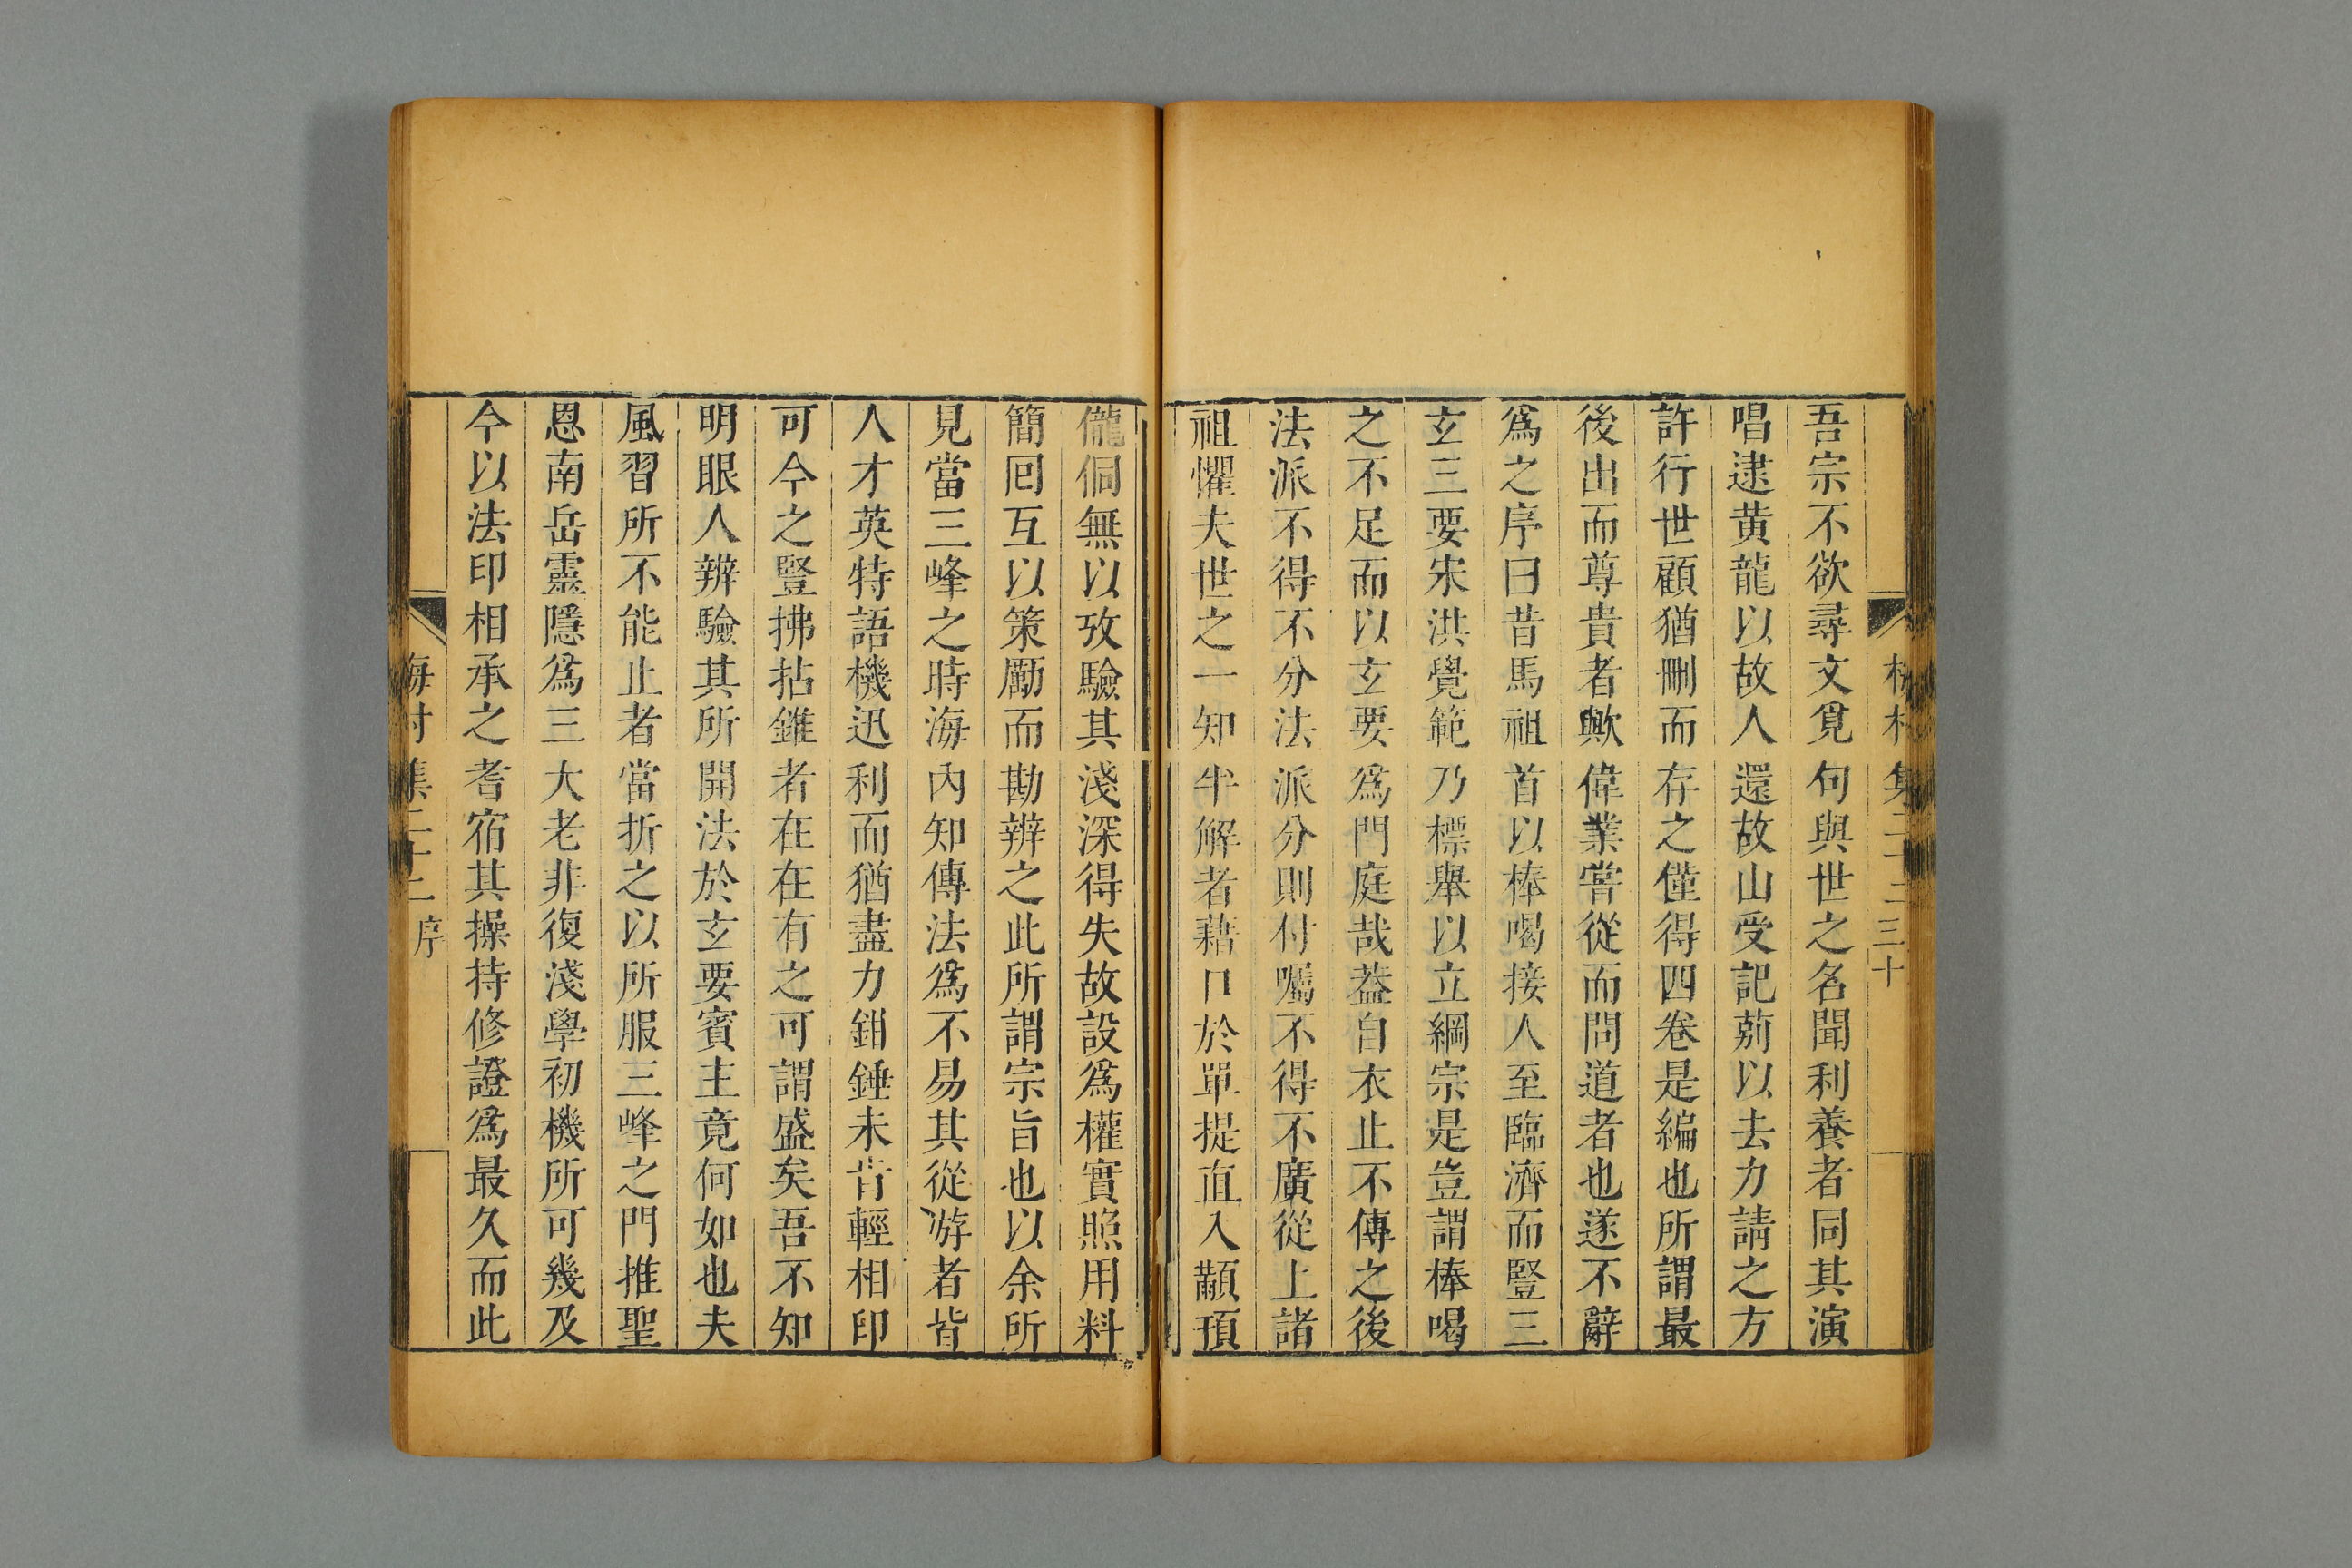 吾宗不欲尋文覓句與世之名聞利養者同其演
唱逮黄龍以故人還故山受記莂以去力請之方
許行世顧猶刪而存之僅得四卷是編也所謂最
後出而尊貴者歟偉業嘗從而問道者也遂不辭
爲之序曰昔馬祖首以棒喝接人至臨濟而豎三
玄三要宋洪覺範乃標舉以立綱宗是豈謂棒喝
之不足而以玄要爲門庭哉葢自衣止不傳之後
法派不得不分法派分則付囑不得不廣從上諸
祖懼夫世之一知半解者藉口於單提直入顢頇
儱侗無以攷驗其淺深得失故設爲權實照用料
簡囘互以策勵而勘辨之此所謂宗旨也以余所
見當三峰之時海內知傳法爲不易其從游者皆
人才英特語機迅利而猶盡力鉗錘未肯輕相印
可今之豎拂拈錐者在在有之可謂盛矣吾不知
明眼人辨驗其所開法於玄要賓主竟何如也夫
風習所不能止者當折之以所服三峰之門推聖
恩南岳靈隱爲三大老非復淺學初機所可幾及
今以法印相承之耆宿其操持修證爲最久而此
梅村集二十二 序